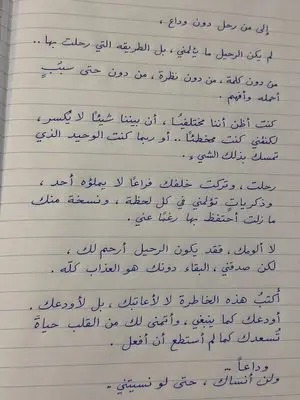 إلى من رحل دون وداع ،
لم يكن الرحيل ما يؤلمني ، بل الطريقة التي رحلت بها ..
من دون كلمة ، من دون نظرة ، من دون حتى سبب
أحمله وأفهم .
كنت أظن أننا مختلفنا ، أن بيننا شيئًا لا يُكسر ،
لكنني كنت مخطئًا .. أو ربما كنت الوحيد الذي
تمسك بذلك الشيء .
رحلت ، وتركت خلفك فراغًا لا يملؤه أحد ،
وذكريات تؤلمني في كل لحظة ، ونسخة منك
ما زلت أحتفظ بها رغمًا عني .
لا ألومك ، فقد يكون الرحيل أرحم لك ،
لكن صدقني ، البقاء دونك هو العذاب كلّه .
أكتبُ هذه الخاطرة لا لأعاتبك ، بل لأودعك .
أودعك كما ينبغي ، وأتمنى لك من القلب حياةً
تُسعدك كما لم أستطع أن أفعل .
وداعاً ..
ولن أنساك ، حتى لو نسيتني .